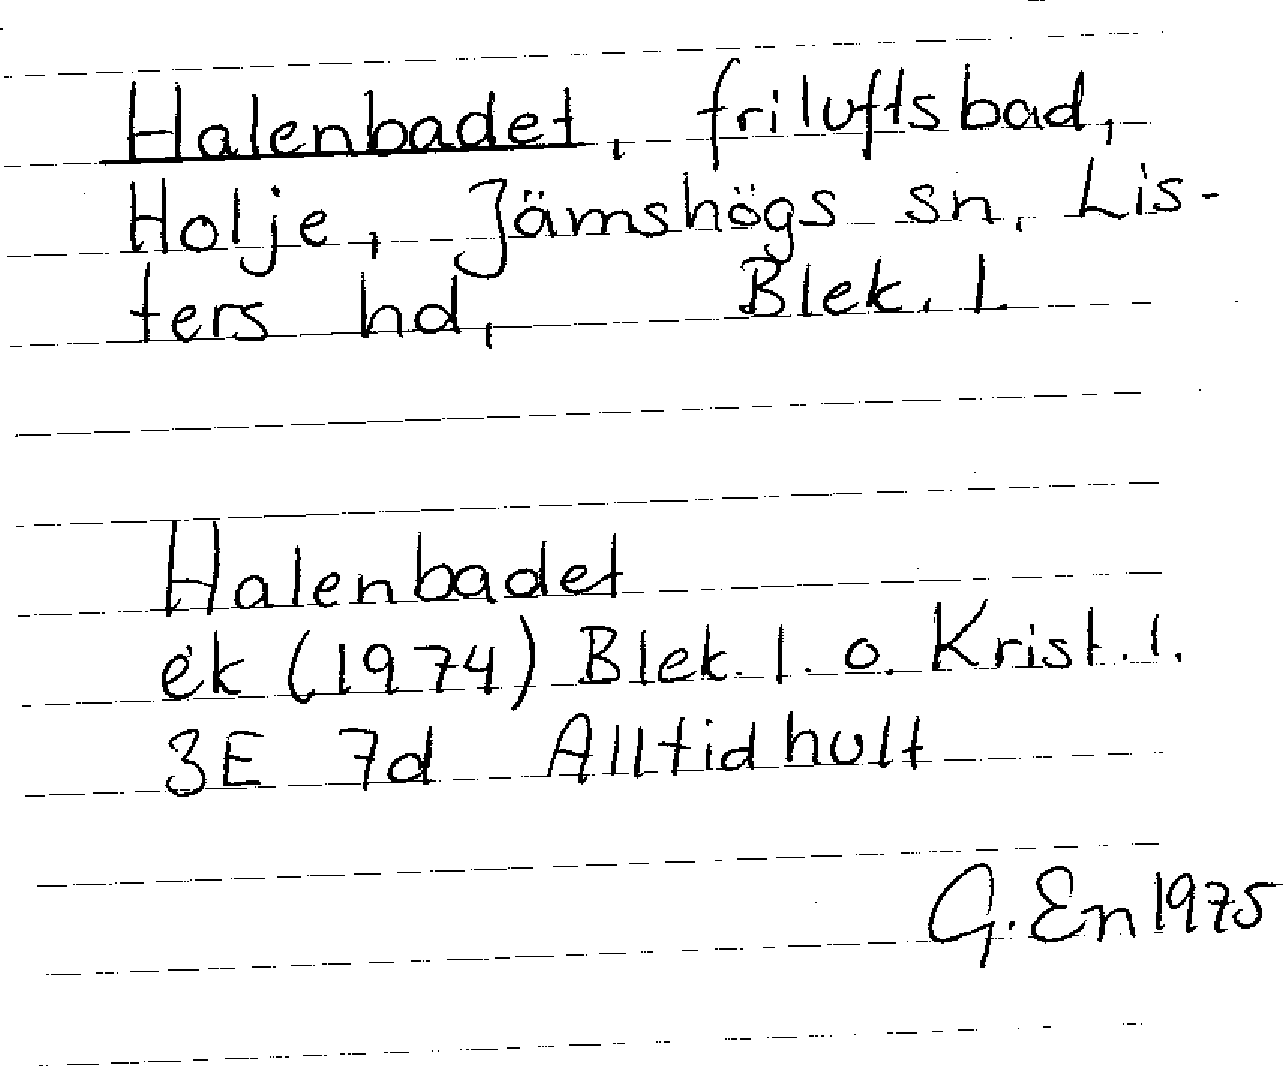 Halenbadet, friluftsbad,
Holje, Jämshögs sn, Lis-
ters hd, Blek. L
Halenbadet
ek (1974) Blek. l. o. Krist. l.
3E 7d Alltidhult
G. En 1975